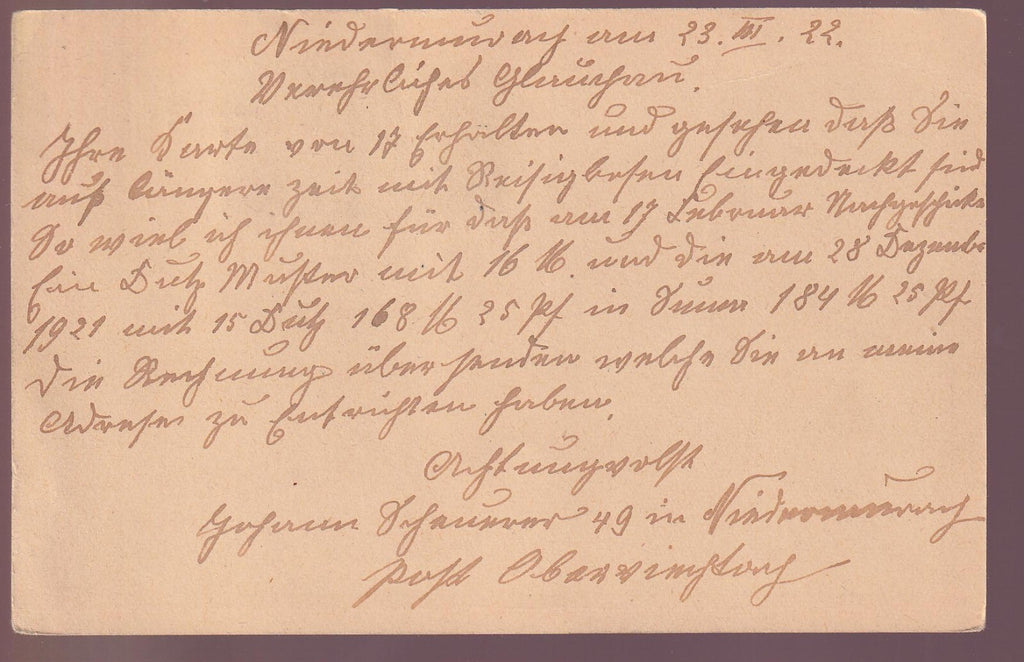 Niedermurach am 23. III. 22.
Verehrliches Glauchau.
Ihre Karte von 17 Erhalten und gesehen daß Sie
auf längere zeit mit Reisigbesen Eingedeckt sind
So wiel ich ihnen für daß am 17 Februar Nachgeschickte
Ein Dutz Muster mit 16 M. und die am 28 Dezember
1921 mit 15 Dutz 168 M 25 Pf in Suma 184 M 25 Pf
die Rechnung über senden welche Sie an meine
Adrese zu Entrichten haben.
Achtungvolst
Johann Scheuerer 49 in Niedermurach
Post Oberviechtach